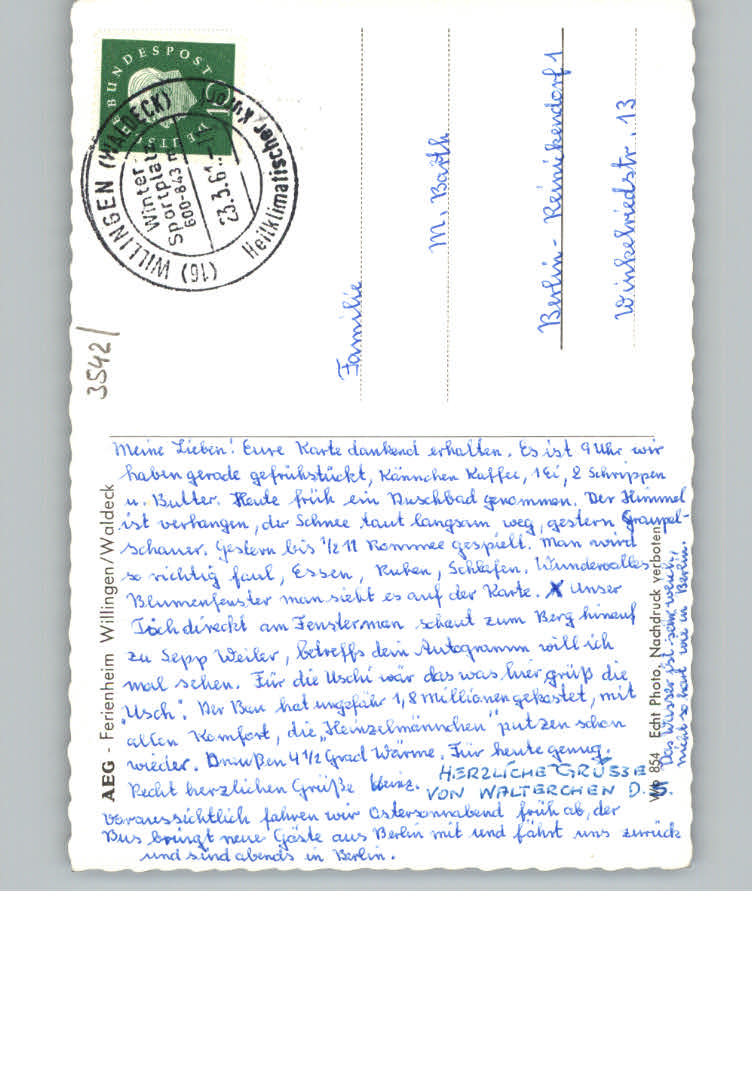 DEUTSCHE BUNDESPOST
10
(16) WILLINGEN (WALDECK)
Heilklimatischer Kurort
Winter
Sportplatz
600-843 m
23.3.61
3542/
Familie
M. Barth
Berlin - Reinickendorf 1
Winkelriedstr. 13
Meine Lieben! Eure Karte dankend erhalten. Es ist 9 Uhr wir
haben gerade gefrühstückt, Kännchen Kaffee, 1 Ei, 2 Schrippen
u. Butter. Heute früh ein Duschbad genommen. Der Himmel
ist verhangen, der Schnee taut langsam weg, gestern Graupel-
schauer. Gestern bis 1/2 11 Rommee gespielt. Man wird
so richtig faul, Essen, Ruhen, Schlafen. Wundervolles
Blumenfenster man sieht es auf der Karte. X Unser
Tisch direckt am Fenster man schaut zum Berg hinauf
zu Sepp Weiler, betreffs dem Autogramm will ich
mal sehen. Für die Uschi wär das was hier grüß die
"Usch". Der Bau hat ungefähr 1,8 Millionen gekostet, mit
allen Komfort, die "Heinzelmännchen" putzen schon
wieder. Draußen 4 1/2 Grad Wärme. Für heute genug.
Recht herzlichen Grüße Heinz.
HERZLICHE GRÜSSE
VON WALTERCHEN D. S.
Voraussichtlich fahren wir Ostersonnabend früh ab, der
Bus bringt neue Gäste aus Berlin mit und fährt uns zurück
und sind abends in Berlin.
Das Wasser ist sehr weich,
nicht so hart wie in Berlin.
AEG - Ferienheim Willingen/Waldeck
854 Echt Photo, Nachdruck verboten